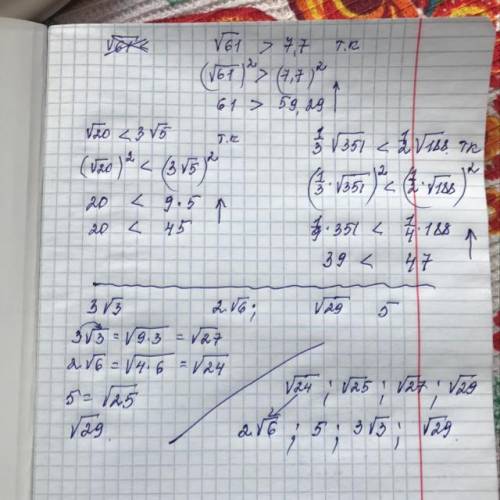 √61 > 7,7 т.к
(√61)² > (7,7)²
61 > 59,29 ↑
√20 < 3√5 т.к
(√20)² < (3√5)²
20 < 9·5
20 < 45 ↑
1/3 √351 < 1/2 √188 т.к
(1/3 · √351)² < (1/2 · √188)²
1/9 · 351 < 1/4 · 188
39 < 47 ↑
3√3 2√6; √29 5
3√3 = √9·3 = √27
2√6 = √4·6 = √24
5 = √25
√29.
√24 ; √25 ; √27 ; √29
2√6 ; 5 ; 3√3 ; √29.